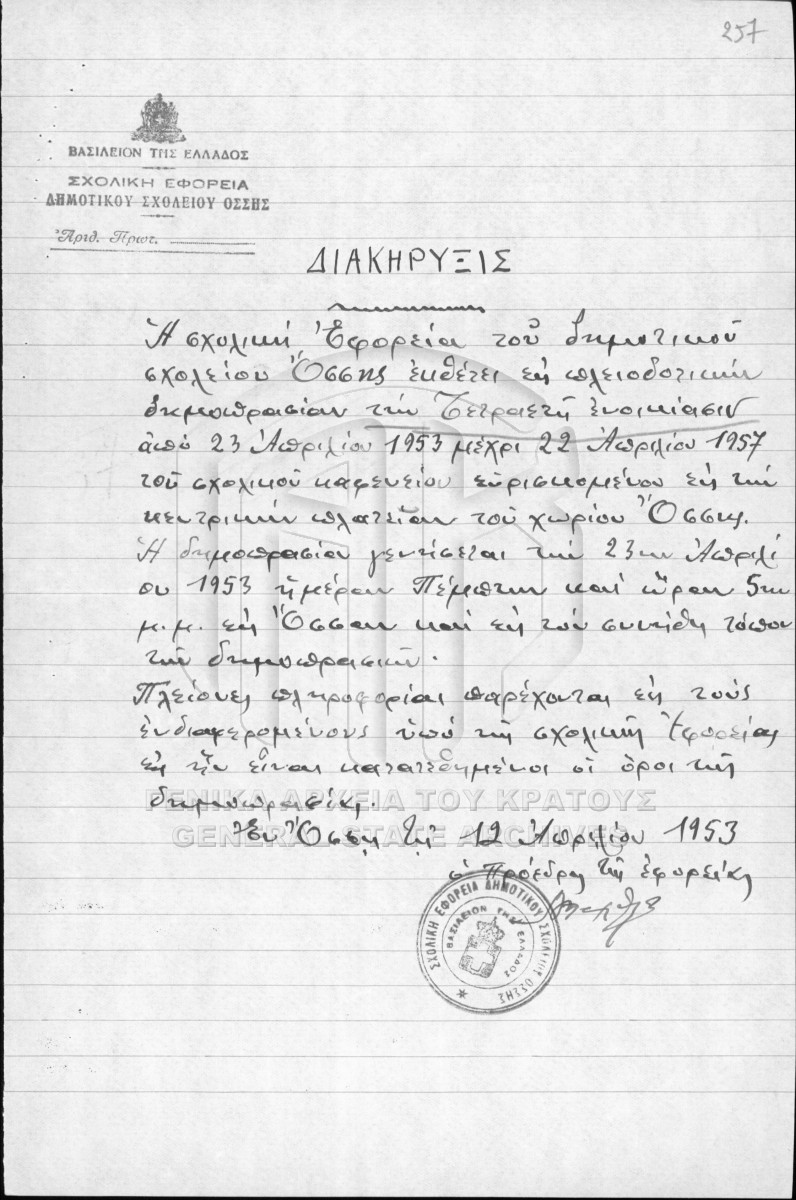 257
ΒΑΣΙΛΕΙΟΝ ΤΗΣ ΕΛΛΑΔΟΣ
ΣΧΟΛΙΚΗ ΕΦΟΡΕΙΑ
ΔΗΜΟΤΙΚΟΥ ΣΧΟΛΕΙΟΥ ΟΣΣΗΣ
Ἀριθ. Πρωτ.
ΔΙΑΚΗΡΥΞΙΣ
Ἡ σχολική Ἐφορεία τοῦ δημοτικοῦ
σχολείου Ὄσσης ἐκθέτει εἰς πλειοδοτικήν
δημοπρασίαν τήν τετραετῆ ἐνοικίασιν
ἀπό 23 Ἀπριλίου 1953 μέχρι 22 Ἀπριλίου 1957
τοῦ σχολικοῦ καφενείου εὑρισκομένου εἰς τήν
κεντρικήν πλατεῖαν τοῦ χωρίου Ὄσσης.
Ἡ δημοπρασίαν γεννήσεται τήν 23ην Ἀπριλί
ου 1953 ἡμέραν Πέμπτην καί ὥραν 5ην
μ.μ. εἰς Ὄσσαν καί εἰς τόν συνήθη τόπον
τῆς δημοπρασίας.
Πλείονες πληροφορίαι παρέχονται εἰς τούς
ἐνδιαφερομένους ὑπό τῆς σχολικῆς Ἐφορείας
εἰς ἥν εἶναι κατατεθημένοι οἱ ὅροι τῆς
δημοπρασίας.
Ἐν Ὄσσῃ τῇ 12 Ἀπριλίου 1953
ὁ Πρόεδρος τῆς ἐφορείας
ΣΧΟΛΙΚΗ ΕΦΟΡΕΙΑ ΔΗΜΟΤΙΚΟΥ ΣΧΟΛΕΙΟΥ ΟΣΣΗΣ
ΒΑΣΙΛΕΙΟΝ ΤΗΣ ΕΛΛΑΔΟΣ
ΓΕΝΙΚΑ ΑΡΧΕΙΑ ΤΟΥ ΚΡΑΤΟΥΣ
GENERAL STATE ARCHIVES